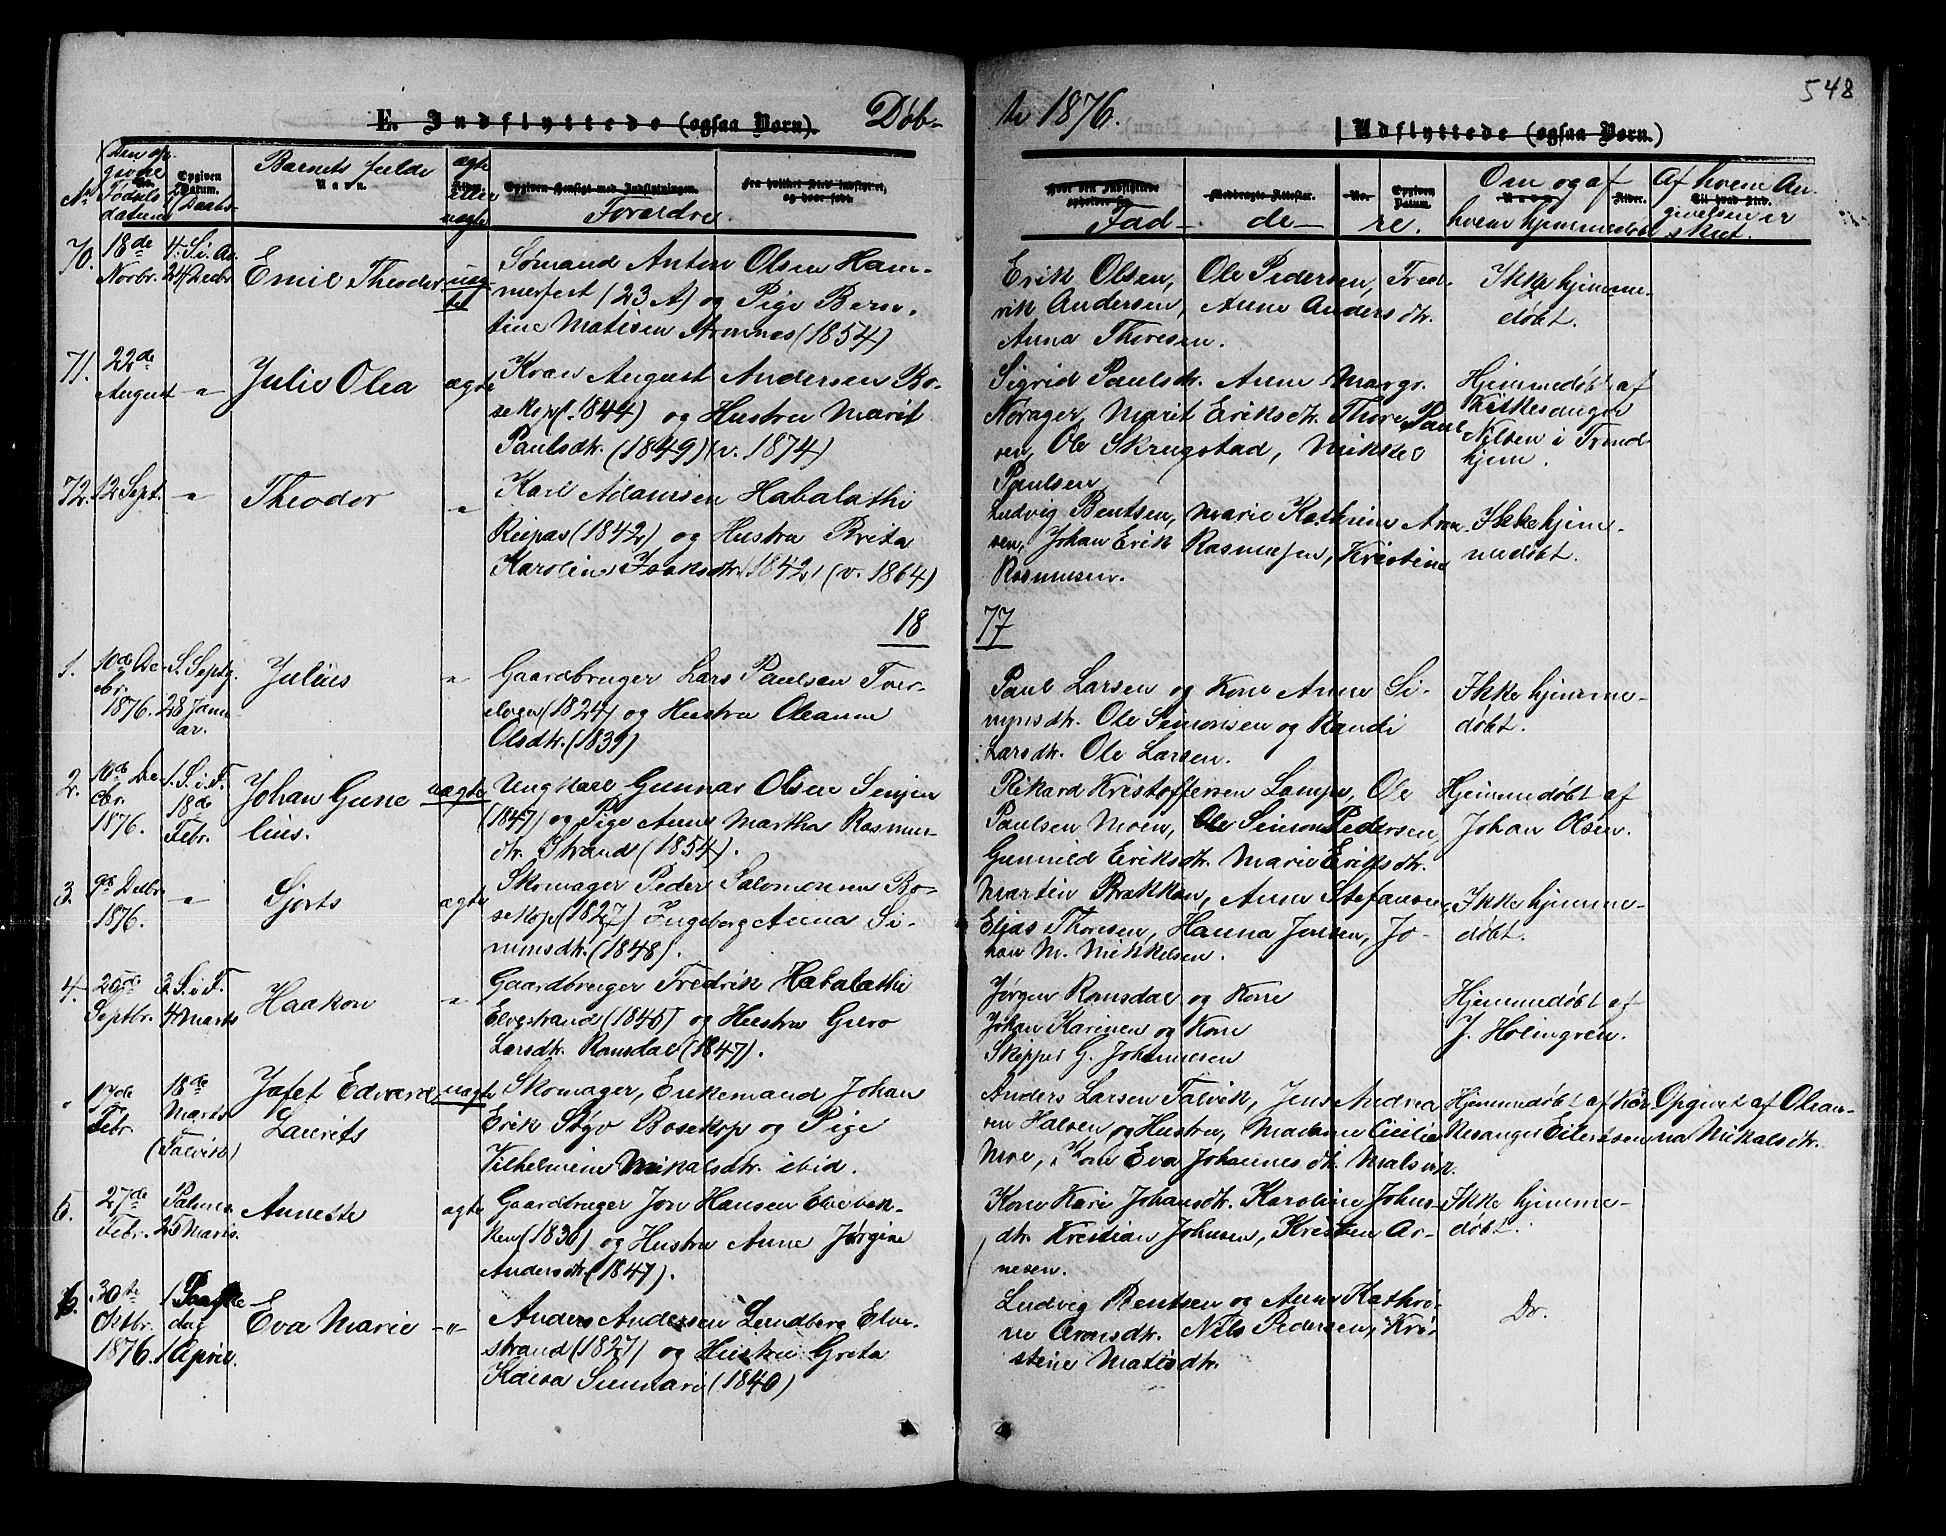 548
E. Indflyttede (ogsaa Børn). Døb-
te 1876.
Udflyttede (ogsaa Børn.)
No
Den op-
givne
Fødsels
datum
Opgiven
Datum.
Daabs-
Barnets fulde
Navn.
ægte
eller
uægte
Opgiven Hensigt med Indflytningen.
Fra hvilket Sted indflyttet,
og hvor født.
Forældre.
Hvor den Indflyttede
opholder sig.
Medbragte Attester.
No.
Opgiven
Datum.
Fad- de- re.
Om og af
Navn.
hvem hjemmedøbt
Alder.
Af hvem An-
Til hvad Sted.
givelsen er
skeet.
70.
18de
Novbr.
4. S. i Ad.
24 Decbr.
Emil Theodor
uæg-
te
Sømand Anton Olsen Ham-
merfest (23 A) og Pige Beret
tine Matisen (1854)
Erik Olsen, Ole Pedersen, Fred-
rik Andersen, Anne Andersdtr.
Anna Thoresen.
Ikke hjemme-
døbt.
71.
22de
August
"
Julie Olea
ægte
Kvæn August Andersen Bo-
sekop (1844) og Hustru Marit
Paulsdtr. (1849) (v. 1874)
Sigrid Paulsdtr. Anne Margr.
Norager, Marit Eriksdtr. Thore Paul
sen, Ole Skrugstad, Mikkel
Paulsen
Hjemmedøbt af
Kirkesanger
Nilsen i Trond
hjem.
72.
12 Sept.
"
Theodor
"
Karl Adamsen Habalathi
Reipas (1842) og Hustru Brita
Karoline Isaksdtr. 1842, (v. 1864)
Ludvig Bentsen, Marie Kathrine Arn-
sen, Johan Erik Rasmussen, Kristine
Rasmussen.
Ikke hjem-
medøbt.
18
77
1.
10de De-
cbr.
1876.
S. Septg.
28 Janu-
ar.
Julius
"
Gaardbruger Lars Paulsen Tver-
elven (1824) og Hustru Oleanne
Olsdtr. (1839)
Paul Larsen og Kone Anne Si-
monsdtr. Ole Simonsen og Randi
Larsdtr. Ole Larsen.
Ikke hjemme-
døbt.
2.
10de De-
cbr.
1876.
1. S. i F.
18de
Febr.
Johan Gune-
lius.
uægte
Ungkarl Gunnar Olsen Senjen
(1847) og Pige Anne Martha Rasmus-
dtr. Strand (1854).
Rikard Kristoffersen Lampe, Ole
Paulsen Moen, Ole Simon Pedersen,
Gunnild Eriksdtr. Marie Eriksdtr.
Hjemmedøbt af
Johan Olsen.
3.
9de Decbr.
1876.
"
Hjorts
ægte
Skomager Peder Salomonsen Bo-
sekop (1827) Ingeborg Anna Si-
monsdtr. (1848).
Martin Brakkan, Anne Stefansen,
Elias Thoresen, Hanna Jensen, Jo-
han M. Mikkelsen.
Ikke hjemme-
døbt.
4.
Septbr.
3. S. i F.
4 Marts
Haakon
"
Gaardbruger Fredrik Habalathi
Elvestrand (1845) og Hustru Guro
Larsdtr. Romsdal (1847).
Jørgen Romsdal og Kone
Johan Karinen og Kone
Skipper G. Johannesen
Hjemmedøbt af
J. Holmgren.
"
17de
Febr.
18de
Marts
(Talvik)
Jafet Edvard
Laurits
uægte
Skomager, Enkemand Johan
Erik Støgo Bosekop og Pige
Vilhelmine Mikalsdtr. ibid.
Anders Larsen Talvik, Jens Andrea-
sen Halsen og Hustru, Madame Cecilie
Moe, Kone Eva Johannesdtr. Malsnes.
Hjemmedøbt af Kir-
kesanger Eilertsen
Opgivet af Olean-
na Mikalsdtr.
5.
27de
Febr.
Palme
25 Marts.
Anneste
ægte
Gaardbruger Jon Hansen Elvebak-
ken (1830) og Hustru Anne Jørgine
Andersdtr. (1847).
Kone Kari Johansdtr. Karoline Johns-
dtr. Kristian Johnsen, Kristen Ar-
nesen.
Ikke hjemme-
døbt.
6.
30te
Oktbr.
1876.
1 Paaske
dag
1 April.
Eva Marie
"
Anders Andersen Lundberg Elve-
strand (1827) og Hustru Greta
Kaisa Sunnari (1840)
Ludvig Bentsen og Anne Kathri-
ne Arnesdtr. Nils Pedersen, Kri-
stine Matisdtr.
Do.